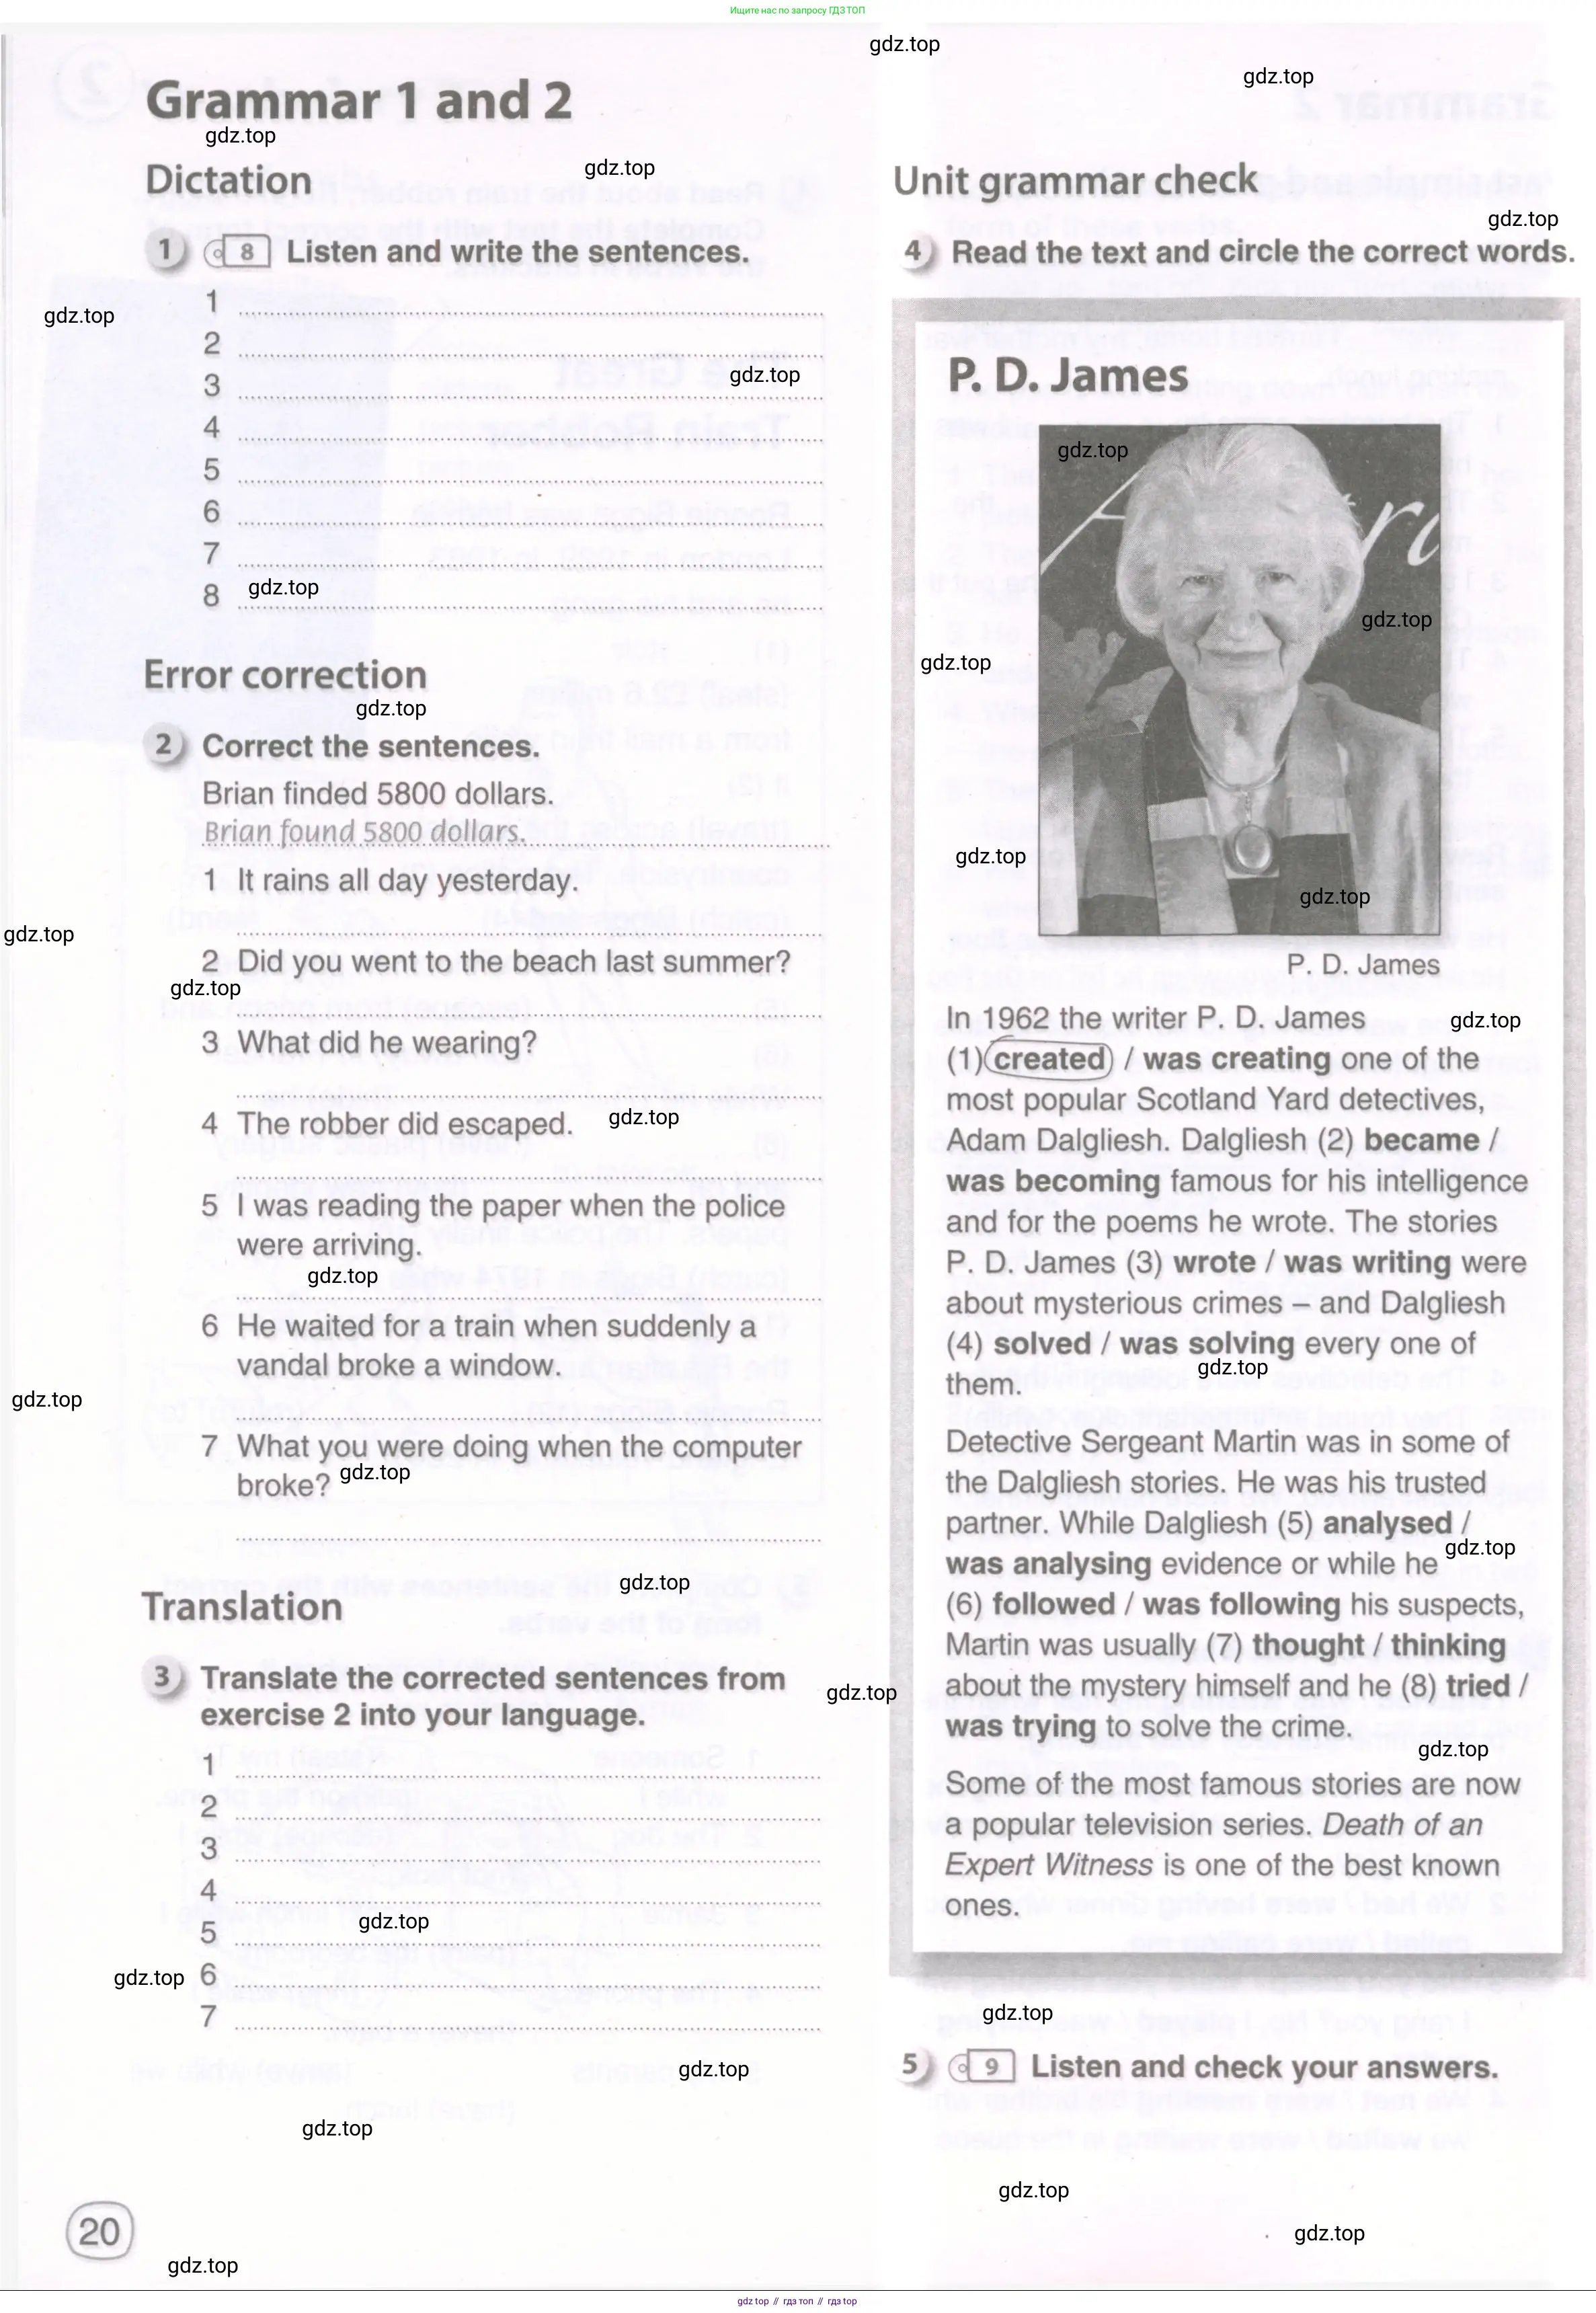 Ищите нас по запросу ГДЗ ТОП
gdz.top
gdz.top
Grammar 1 and 2
gdz.top
Dictation
gdz.top
1 8 Listen and write the sentences.
gdz.top
1
2
3
gdz.top
4
5
6
7
8
gdz.top
Error correction
gdz.top
2 Correct the sentences.
Brian finded 5800 dollars.
Brian found 5800 dollars.
1 It rains all day yesterday.
gdz.top
2 Did you went to the beach last summer?
gdz.top
3 What did he wearing?
4 The robber did escaped.
gdz.top
5 I was reading the paper when the police
were arriving.
gdz.top
6 He waited for a train when suddenly a
vandal broke a window.
gdz.top
7 What you were doing when the computer
broke?
gdz.top
gdz.top
Translation
3 Translate the corrected sentences from
exercise 2 into your language.
gdz.top
1
2
3
4
gdz.top
5
gdz.top
6
7
gdz.top
gdz.top
20
gdz.top
Unit grammar check
gdz.top
4 Read the text and circle the correct words.
P. D. James
gdz.top
gdz.top
gdz.top
gdz.top
gdz.top
P. D. James
In 1962 the writer P. D. James
gdz.top
(1) created / was creating one of the
most popular Scotland Yard detectives,
Adam Dalgliesh. Dalgliesh (2) became /
was becoming famous for his intelligence
and for the poems he wrote. The stories
P. D. James (3) wrote / was writing were
about mysterious crimes – and Dalgliesh
(4) solved / was solving every one of
gdz.top
them.
Detective Sergeant Martin was in some of
the Dalgliesh stories. He was his trusted
partner. While Dalgliesh (5) analysed /
gdz.top
was analysing evidence or while he
(6) followed / was following his suspects,
Martin was usually (7) thought / thinking
about the mystery himself and he (8) tried /
was trying to solve the crime.
gdz.top
Some of the most famous stories are now
a popular television series. Death of an
Expert Witness is one of the best known
ones.
gdz.top
5 9 Listen and check your answers.
gdz.top
gdz.top
gdz top // гдз топ // гдз top